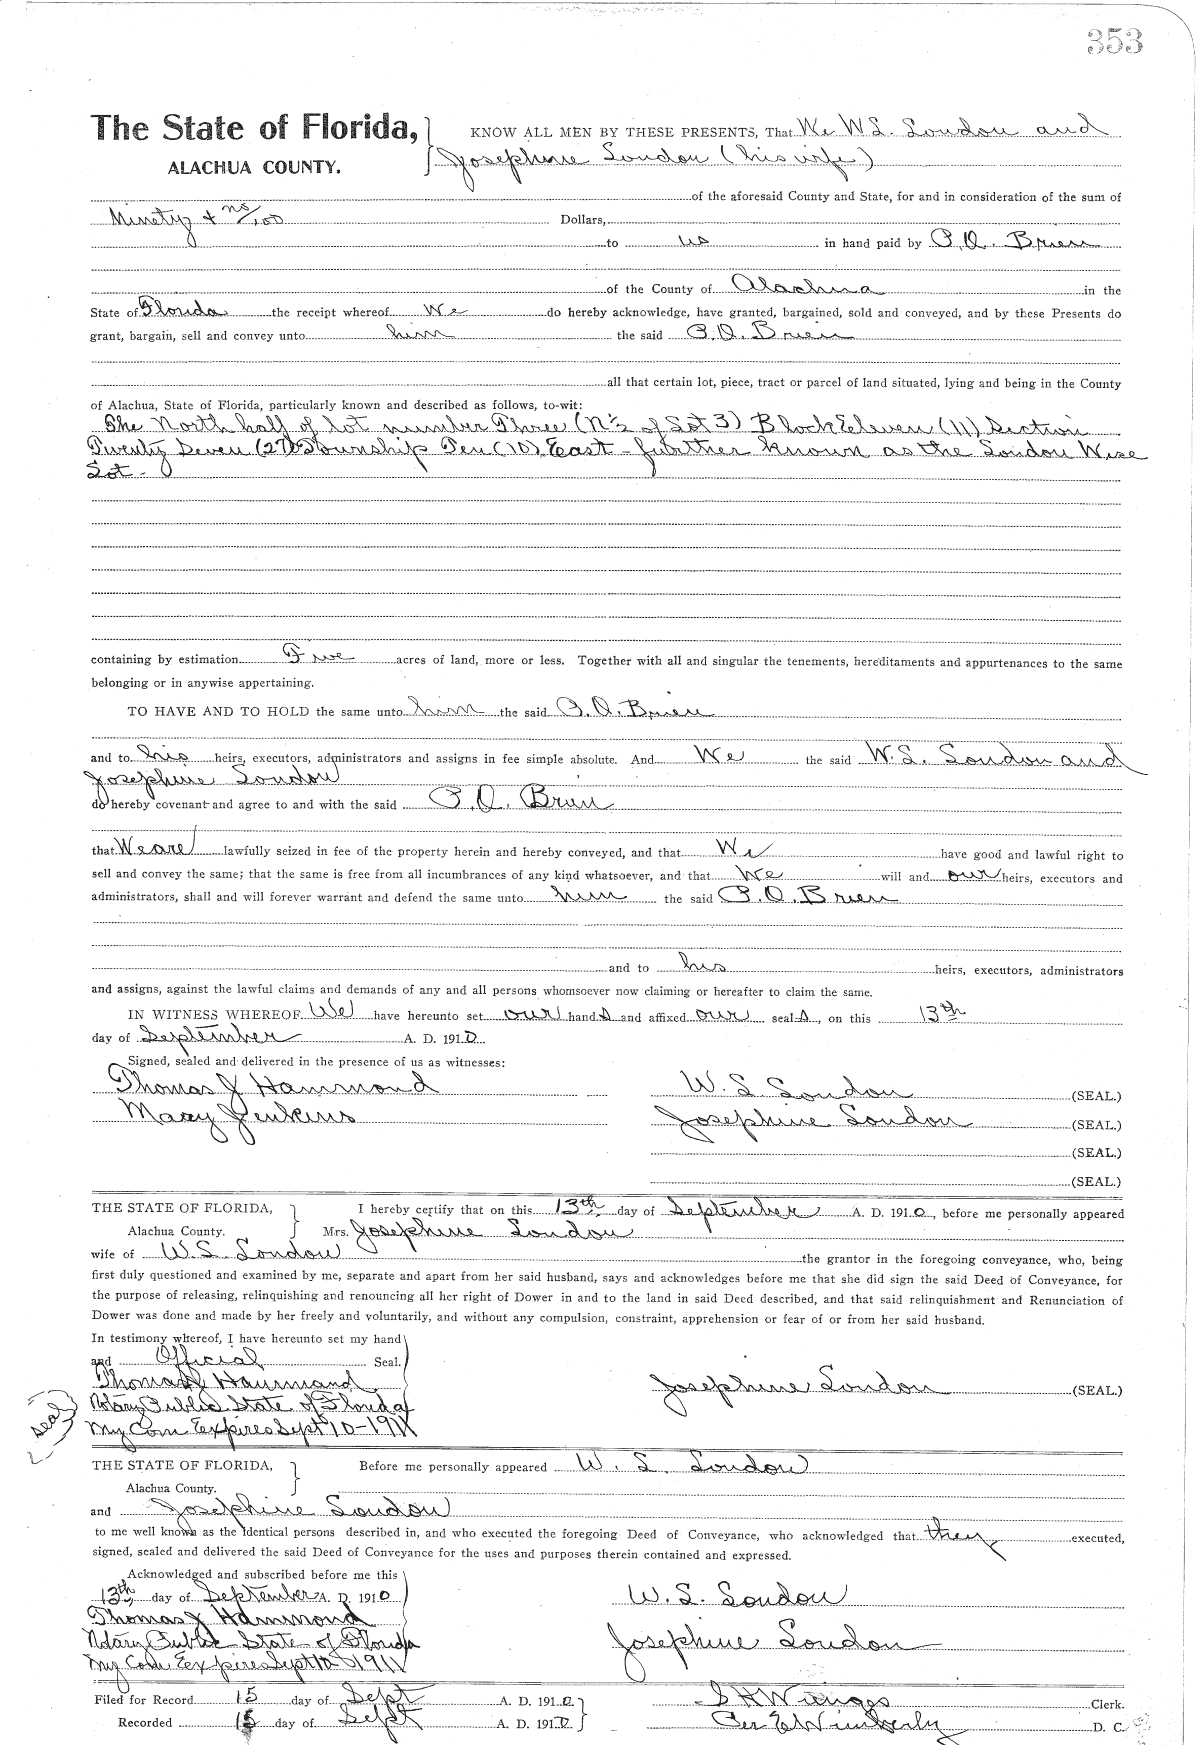 353
The State of Florida, KNOW ALL MEN BY THESE PRESENTS, That We W.S. Loudon and
ALACHUA COUNTY. Josephine Loudon (his wife)
of the aforesaid County and State, for and in consideration of the sum of
Ninety & no/100 Dollars,
to us in hand paid by P.O. Brien
of the County of Alachua in the
State of Florida the receipt whereof We do hereby acknowledge, have granted, bargained, sold and conveyed, and by these Presents do
grant, bargain, sell and convey unto him the said P.O. Brien
all that certain lot, piece, tract or parcel of land situated, lying and being in the County
of Alachua, State of Florida, particularly known and described as follows, to-wit:
The North half of lot number Three (N½ of Lot 3) Block Eleven (11) Section
Twenty Seven (27) Township Ten (10) East - further known as the Loudon Wise
Lot -
containing by estimation Five acres of land, more or less. Together with all and singular the tenements, hereditaments and appurtenances to the same
belonging or in anywise appertaining.
TO HAVE AND TO HOLD the same unto him the said P.O. Brien
and to his heirs, executors, administrators and assigns in fee simple absolute. And We the said W.S. Loudon and
Josephine Loudon
do hereby covenant and agree to and with the said P.O. Brien
that We are lawfully seized in fee of the property herein and hereby conveyed, and that We have good and lawful right to
sell and convey the same; that the same is free from all incumbrances of any kind whatsoever, and that We will and our heirs, executors and
administrators, shall and will forever warrant and defend the same unto him the said P.O. Brien
and to his heirs, executors, administrators
and assigns, against the lawful claims and demands of any and all persons whomsoever now claiming or hereafter to claim the same.
IN WITNESS WHEREOF We have hereunto set our hands and affixed our seals, on this 13th
day of September A. D. 1910
Signed, sealed and delivered in the presence of us as witnesses:
Thomas J Hammond W. S Loudon (SEAL.)
Mary Jenkins Josephine Loudon (SEAL.)
(SEAL.)
(SEAL.)
THE STATE OF FLORIDA, I hereby certify that on this 13th day of September A. D. 1910, before me personally appeared
Alachua County. Mrs. Josephine Loudon
wife of W.S. Loudon the grantor in the foregoing conveyance, who, being
first duly questioned and examined by me, separate and apart from her said husband, says and acknowledges before me that she did sign the said Deed of Conveyance, for
the purpose of releasing, relinquishing and renouncing all her right of Dower in and to the land in said Deed described, and that said relinquishment and Renunciation of
Dower was done and made by her freely and voluntarily, and without any compulsion, constraint, apprehension or fear of or from her said husband.
In testimony whereof, I have hereunto set my hand
and Official Seal.
Thomas J Hammond Josephine Loudon (SEAL.)
Notary Public State of Florida
seal
My Com Expires Sept 10-1911
THE STATE OF FLORIDA, Before me personally appeared W. S. Loudon
Alachua County.
and Josephine Loudon
to me well known as the identical persons described in, and who executed the foregoing Deed of Conveyance, who acknowledged that they executed,
signed, sealed and delivered the said Deed of Conveyance for the uses and purposes therein contained and expressed.
Acknowledged and subscribed before me this
13th day of September A. D. 1910 W. S. Loudon
Thomas J Hammond
Notary Public State of Florida Josephine Loudon
My Com Expires Sept 10 1911
Filed for Record 15 day of Sept A. D. 1910 S H Wienges Clerk.
Recorded 15 day of Sept A. D. 1910 Per E Wimberly D. C.